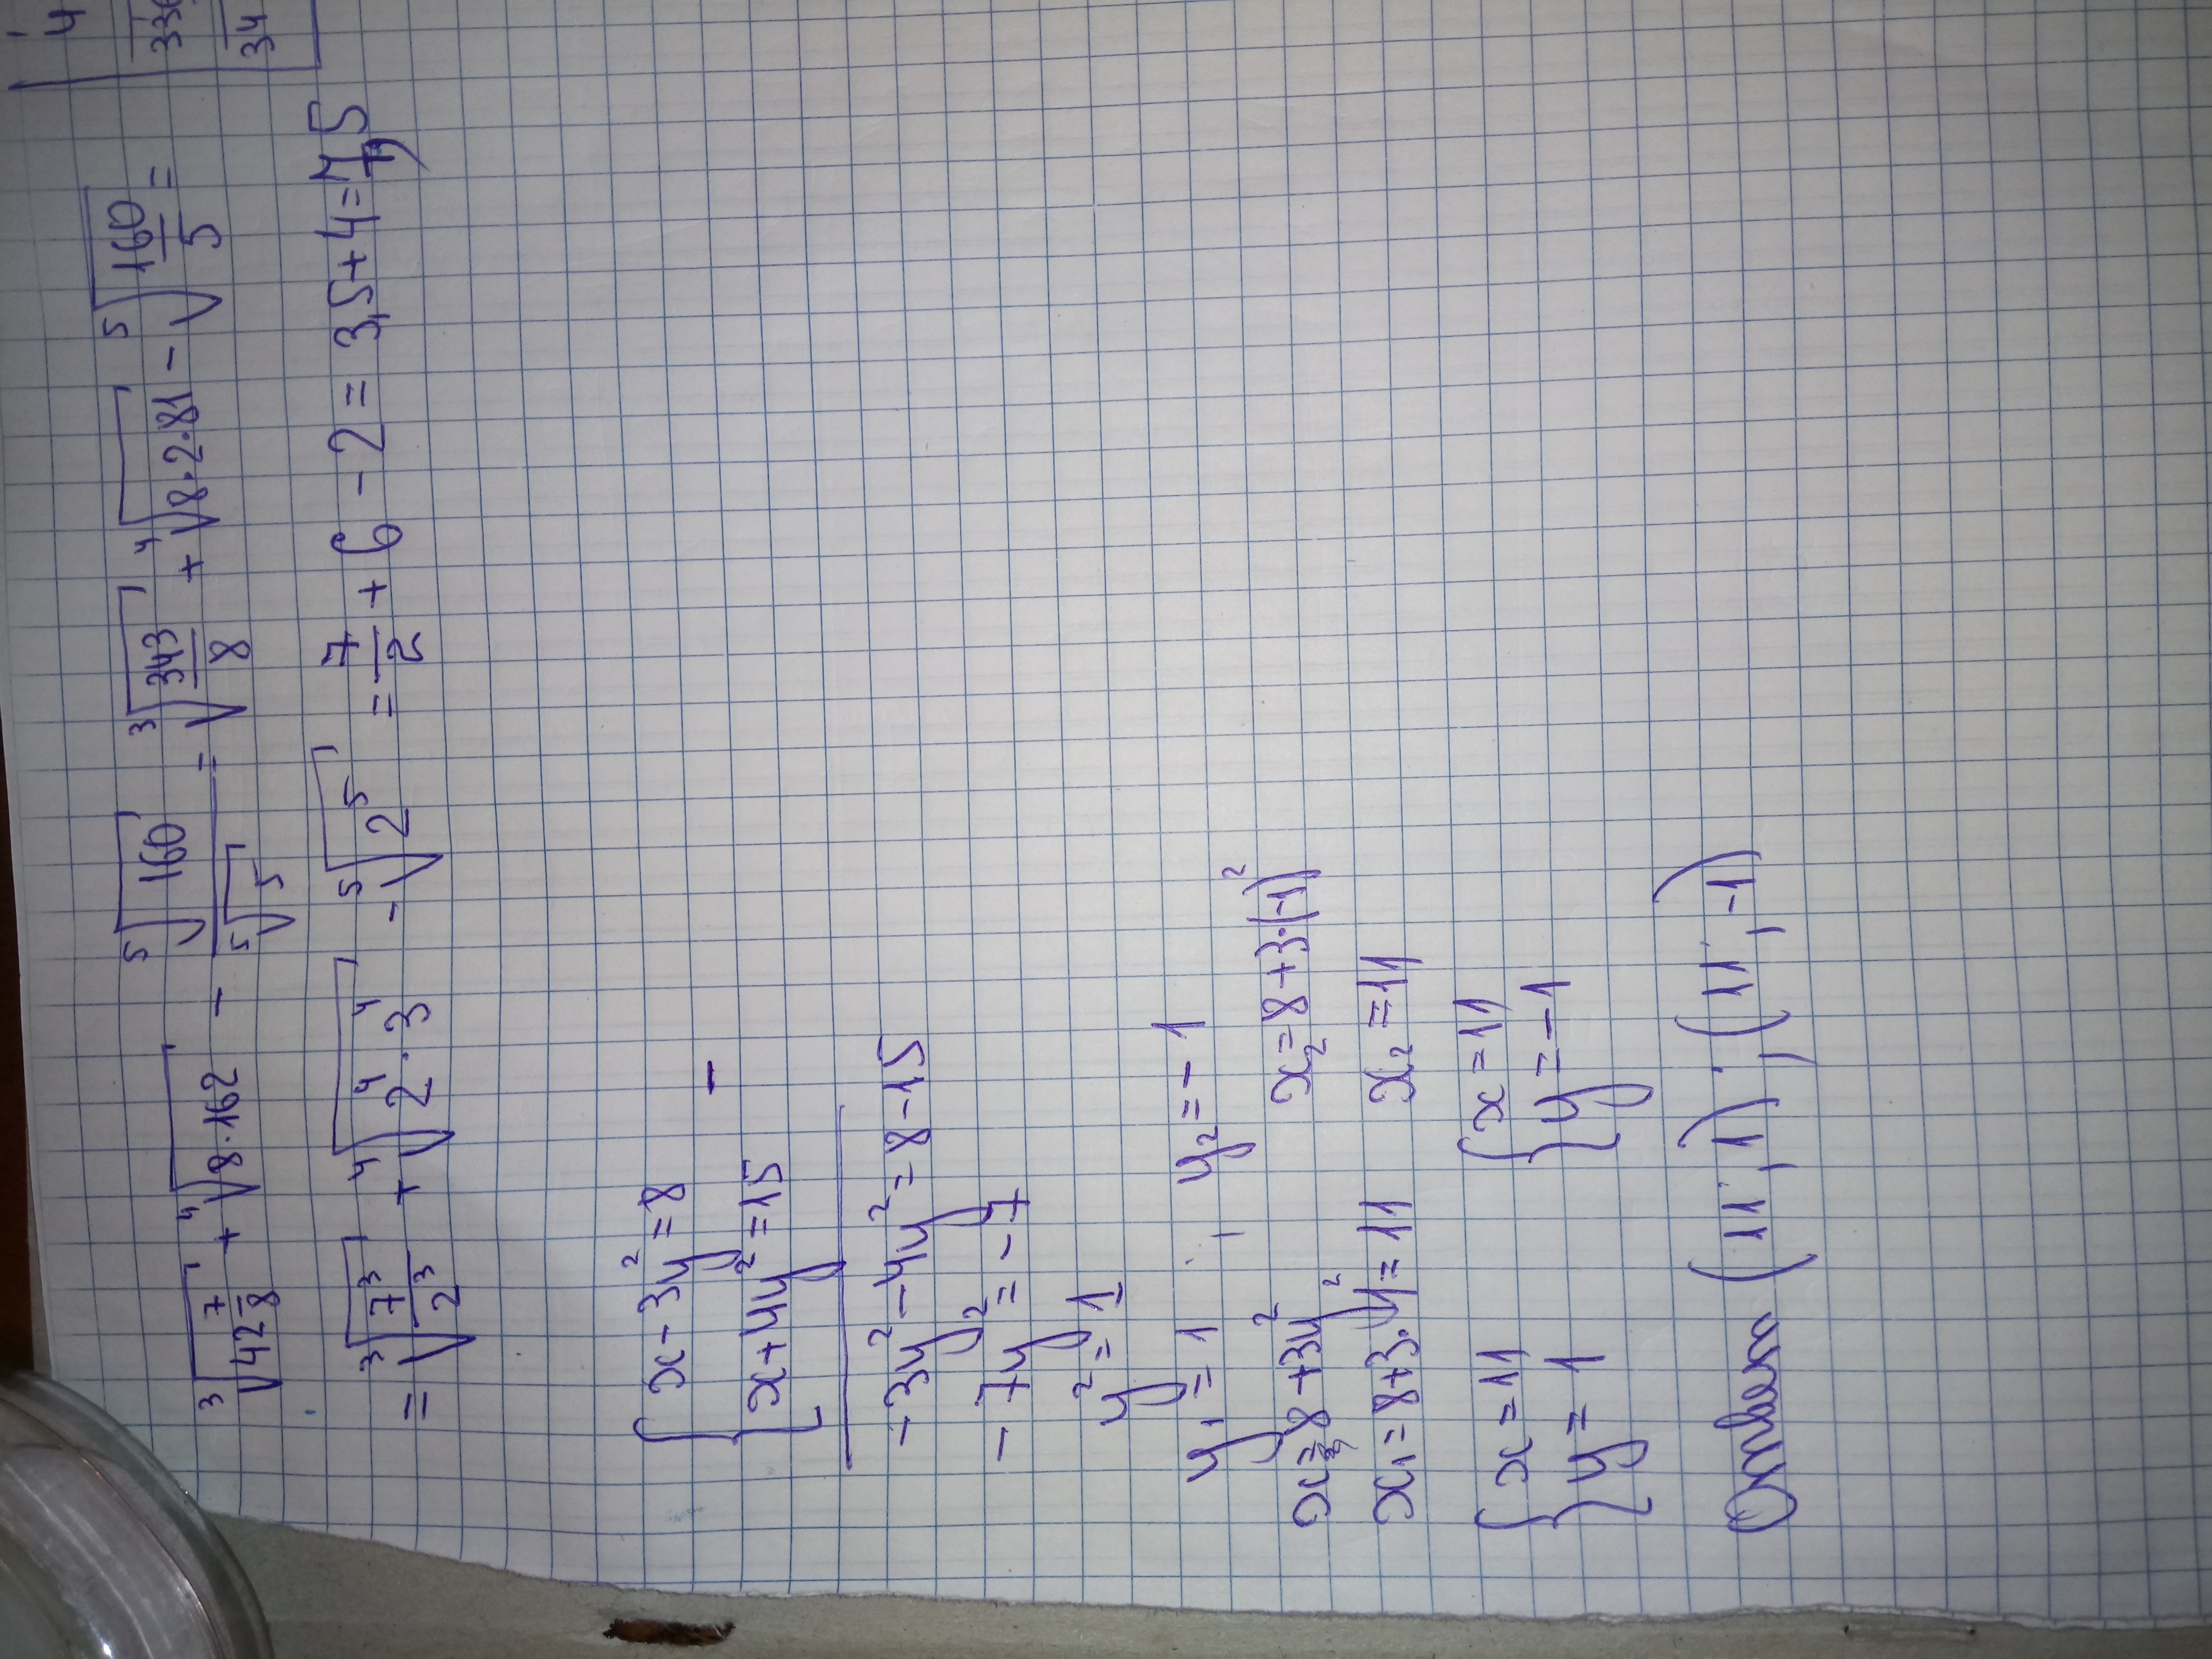 ∛(42 7/8) + ∜(8·162) - ⁵√160 / ⁵√5 = ∛(343/8) + ∜(8·2·81) - ⁵√(160/5) =
= ∛(7³/2³) + ∜(2⁴·3⁴) - ⁵√(2⁵) = 7/2 + 6 - 2 = 3,5 + 4 = 7,5
{ x - 3y² = 8
x + 4y² = 15 -
-3y² - 4y² = 8 - 15
-7y² = -7
y² = 1
y₁ = 1 ; y₂ = -1
x = 8 + 3y² x₂ = 8 + 3·(-1)²
x₁ = 8 + 3·y² = 11 x₂ = 11
{ x = 11 { x = 11
y = 1 y = -1
Ответ (11; 1); (11; -1)
4
336
34